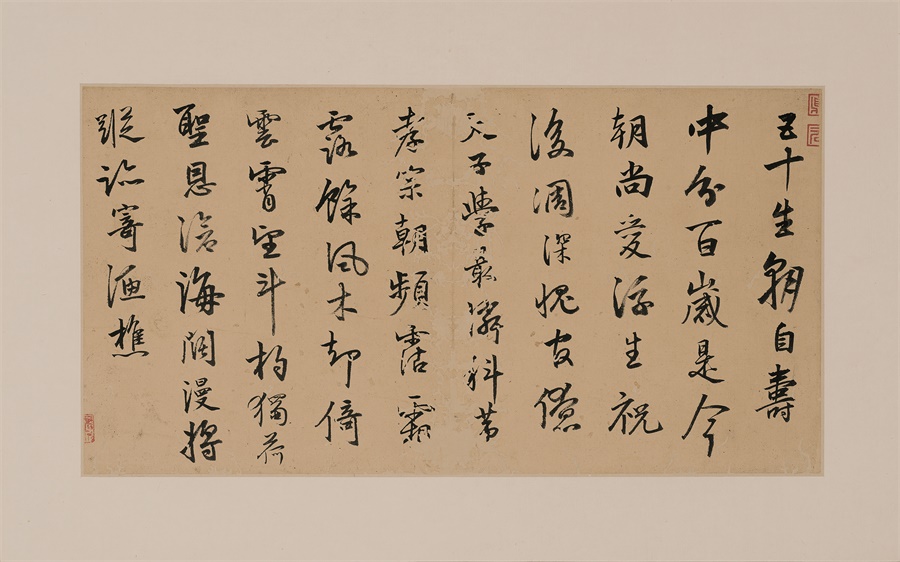 五十生朝自壽
中分百歲是今
朝尚愛浮生祝
後凋深愧友僚
天子學最憐科第
孝宗朝頻霑霜
露餘風木却倚
雲霄望斗杓獨荷
聖恩滄海闊漫將
蹤跡寄漁樵